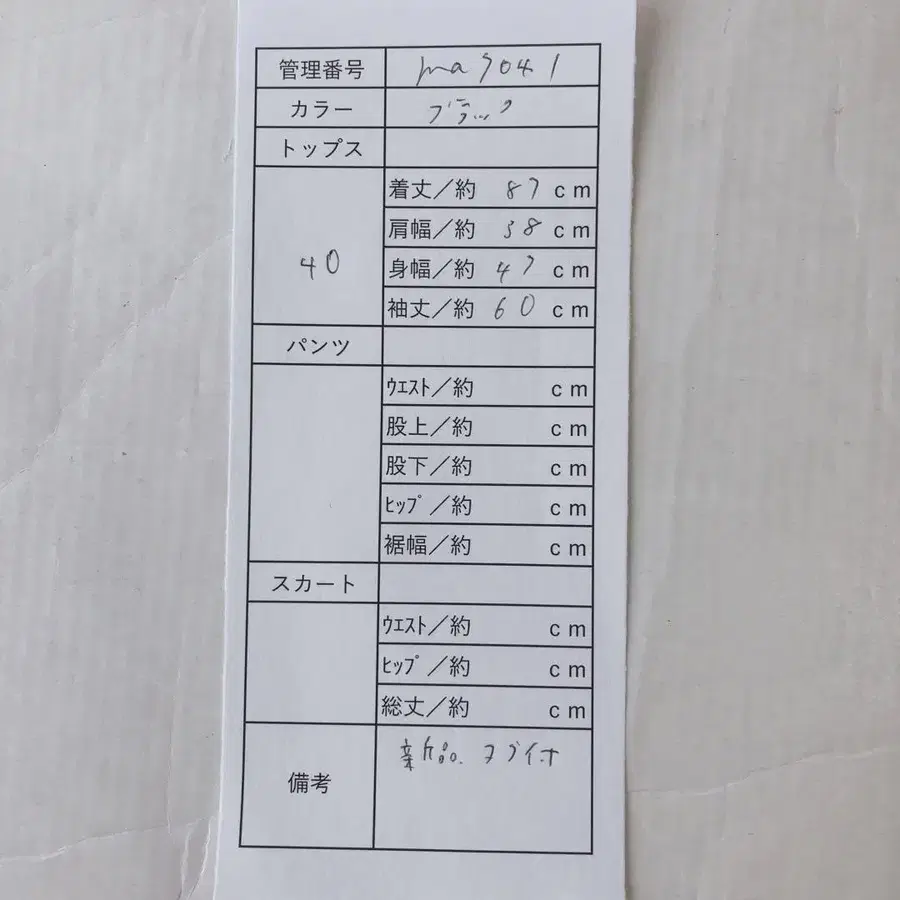 管理番号 ma9041
カラー ブラック
トップス
40
着丈／約 87 cm
肩幅／約 38 cm
身幅／約 47 cm
袖丈／約 60 cm
パンツ
ウエスト／約 cm
股上／約 cm
股下／約 cm
ヒップ／約 cm
裾幅／約 cm
スカート
ウエスト／約 cm
ヒップ／約 cm
総丈／約 cm
備考 新品、タグ付